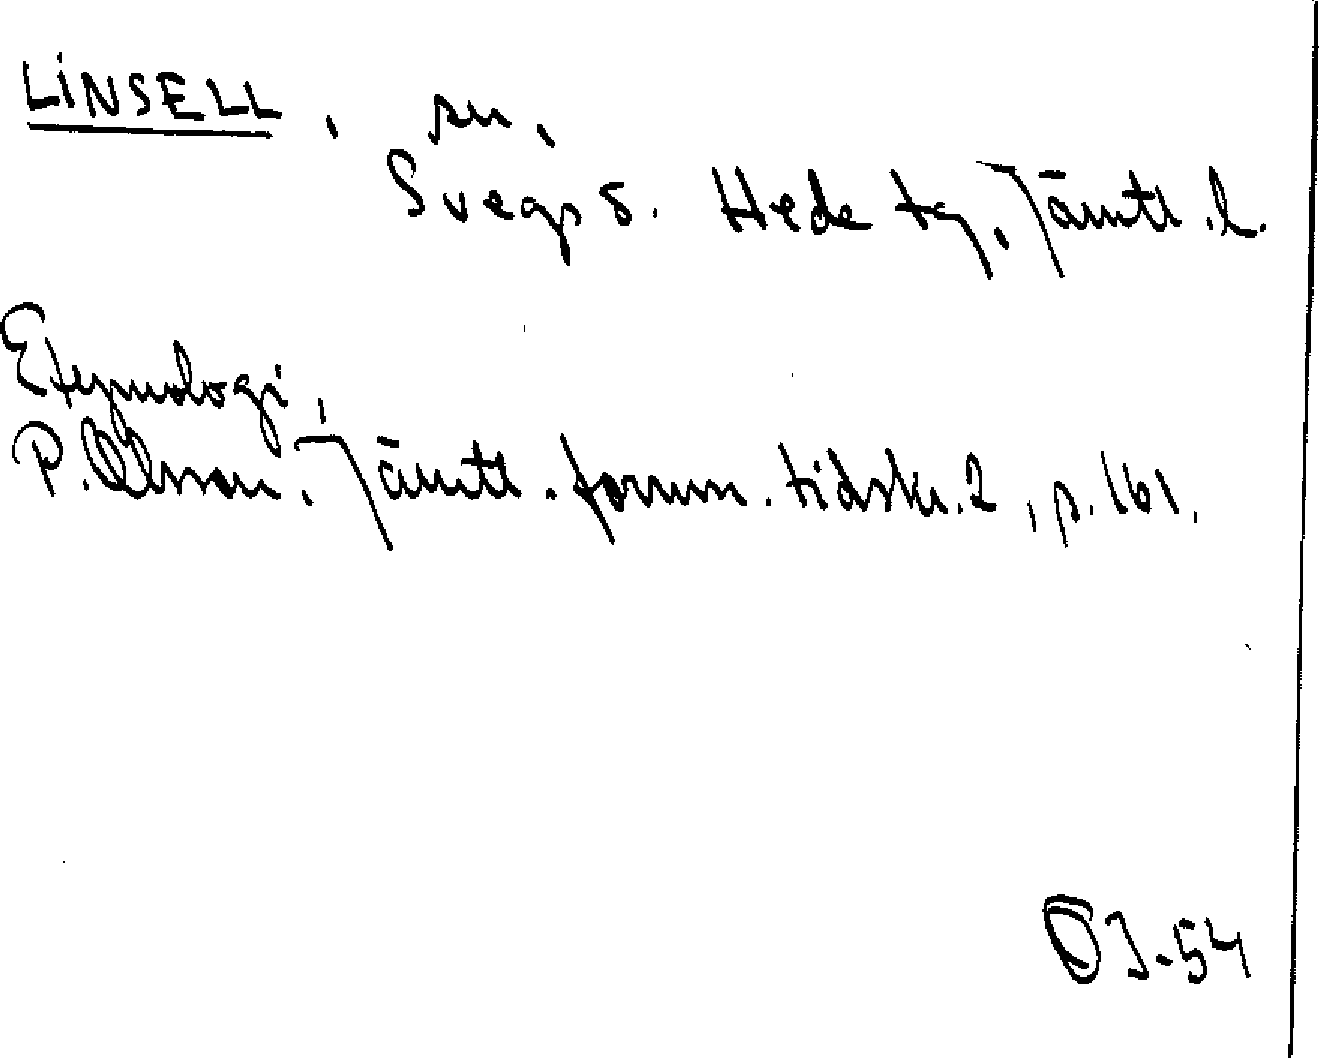 LINSELL, sn,
Svegs s. Hede tg, Jämtl. l.
Etymologi,
P. Olsson. Jämtl. fornm. tidskr. 2, p. 161.
ÖJ-54